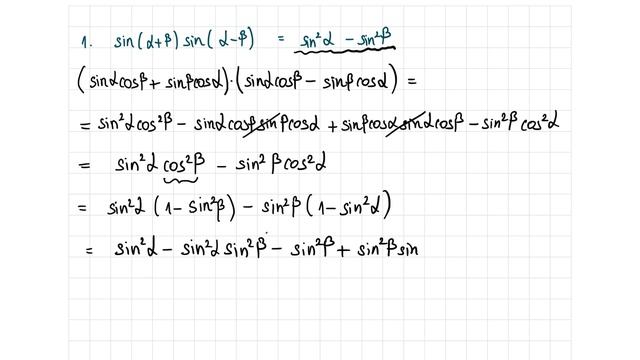 1. sin(α+β) sin(α-β) = sin²α - sin²β
(sinαcosβ + sinβcosα)·(sinαcosβ - sinβcosα) =
= sin²αcos²β - sinαcosβsinβcosα + sinβcosαsinαcosβ - sin²βcos²α
= sin²αcos²β - sin²βcos²α
= sin²α(1-sin²β) - sin²β(1-sin²α)
= sin²α - sin²αsin²β - sin²β + sin²βsin